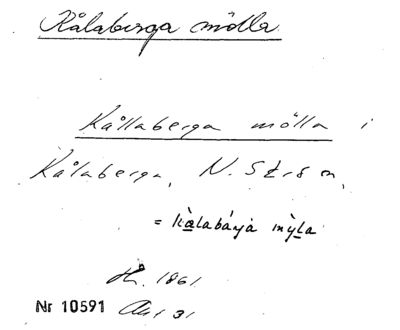 Kålaberga mölla
Kållaberga mölla i
Kålaberga, N. Strö sn,
= kàlabárja mỳla
1861
Nr 10591